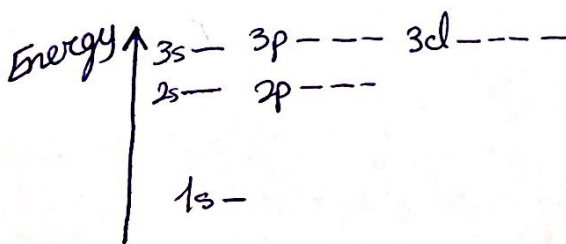 Energy 3s 3p 3d
2s 2p
1s